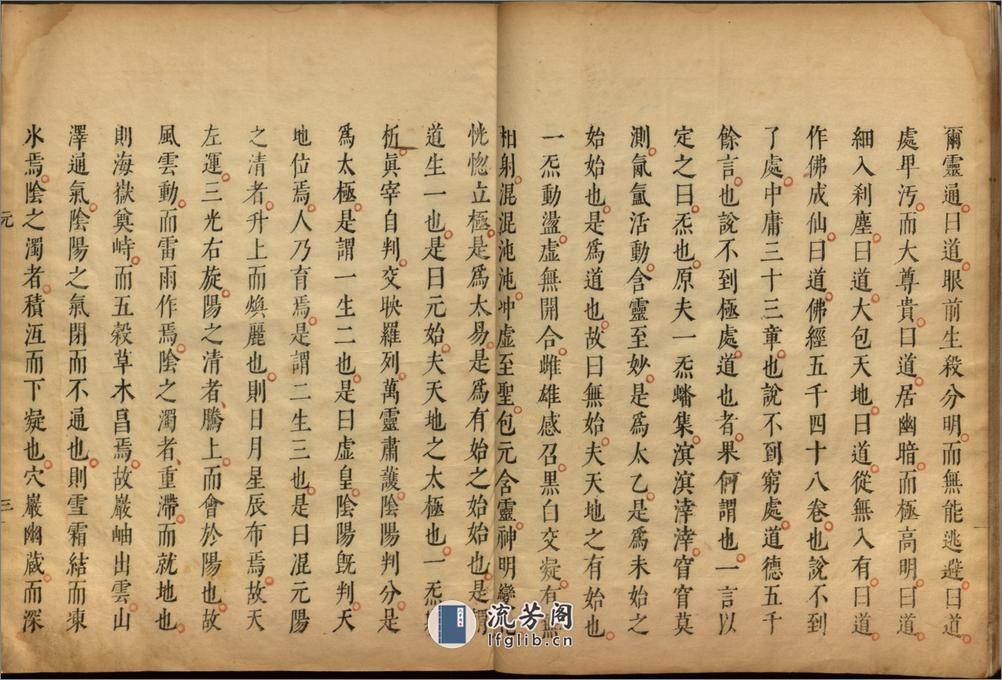 爾靈通曰道眼前生殺分明而無能逃避曰道
處卑污而大尊貴曰道居幽暗而極高明曰道
細入刹塵曰道大包天地曰道從無入有曰道
作佛成仙曰道佛經五千四十八卷也說不到
了處中庸三十三章也說不到窮處道德五千
餘言也說不到極處道也者果何謂也一言以
定之曰炁也原夫一炁蟠集溟溟滓滓窅窅莫
測氤氳活動含靈至妙是爲太乙是爲未始之
始始也是爲道也故曰無始夫天地之有始也
一炁動盪虛無開合雌雄感召黑白交凝有無
相射混混沌沌冲虛至聖包元含靈神明變化
恍惚立極是爲太易是爲有始之始始也是謂
道生一也是曰元始夫天地之太極也一炁
析眞宰自判交映羅列萬靈肅護陰陽判分是
爲太極是謂一生二也是曰虛皇陰陽旣判天
地位焉人乃育焉是謂二生三也是曰混元陽
之清者升上而煥麗也則日月星辰布焉故天
左運三光右旋陽之清者騰上而會於陽也故
風雲動而雷雨作焉陰之濁者重滯而就地也
則海嶽奠峙而五穀草木昌焉故巖岫出雲山
澤通氣陰陽之氣閉而不通也則雪霜結而凍
氷焉陰之濁者積冱而下凝也穴巖幽藏而深
元 三
流芳阁
lfglib.cn